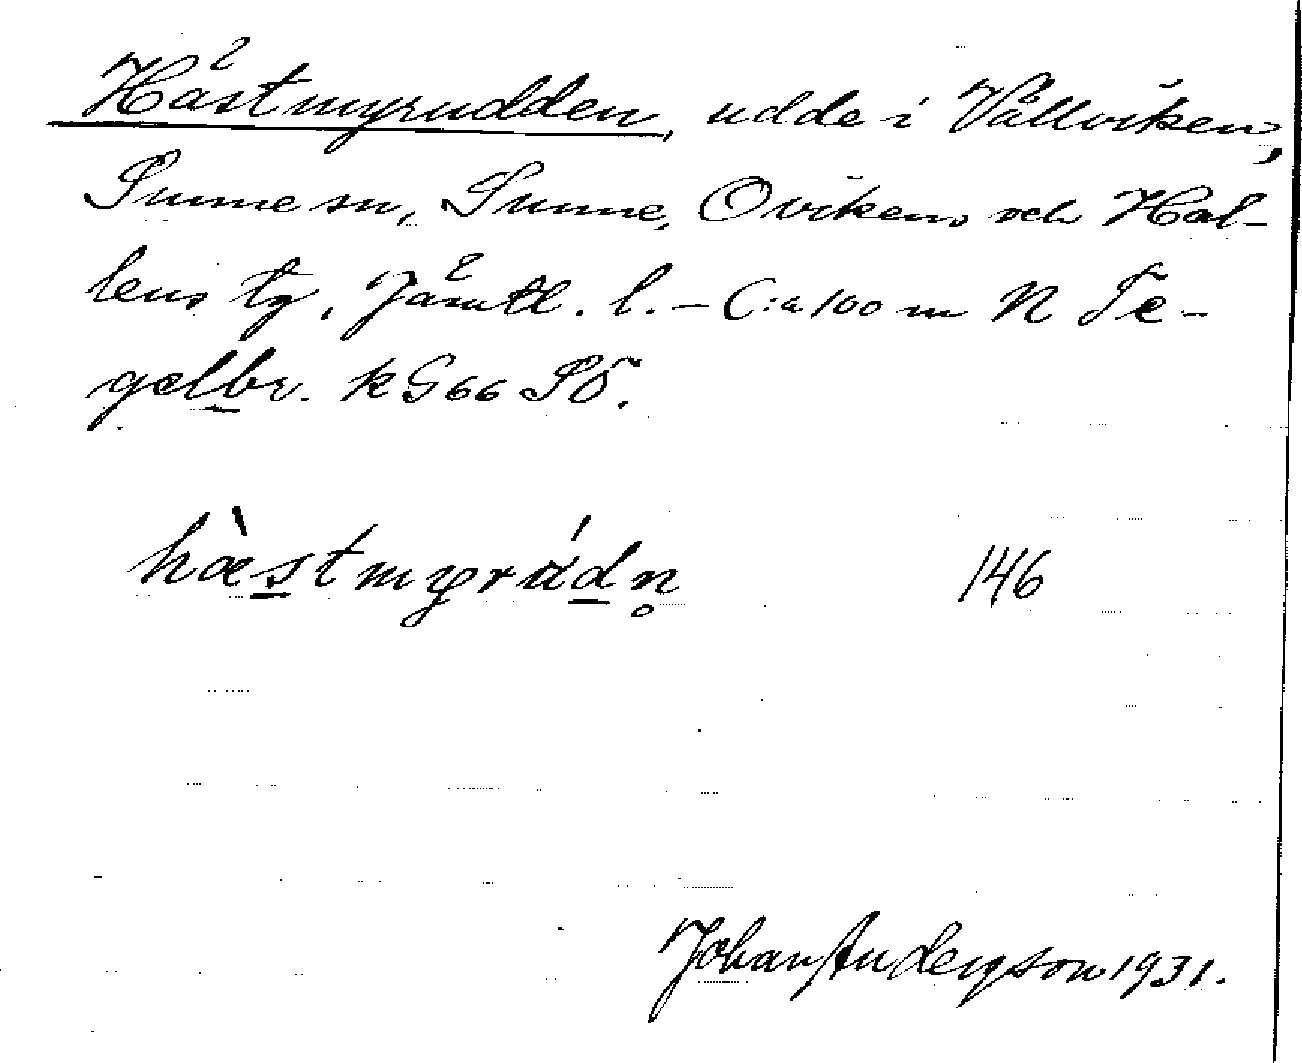 Hästmyrudden, udde i Vällviken,
Sunne sn, Sunne, Ovikens och Hal-
lens tg, Jämtl. l. – C:a 100 m N Te-
gelbr. k G66 SO.
hæ̀stmyrúdn̥ 146
Johan Anderson 1931.